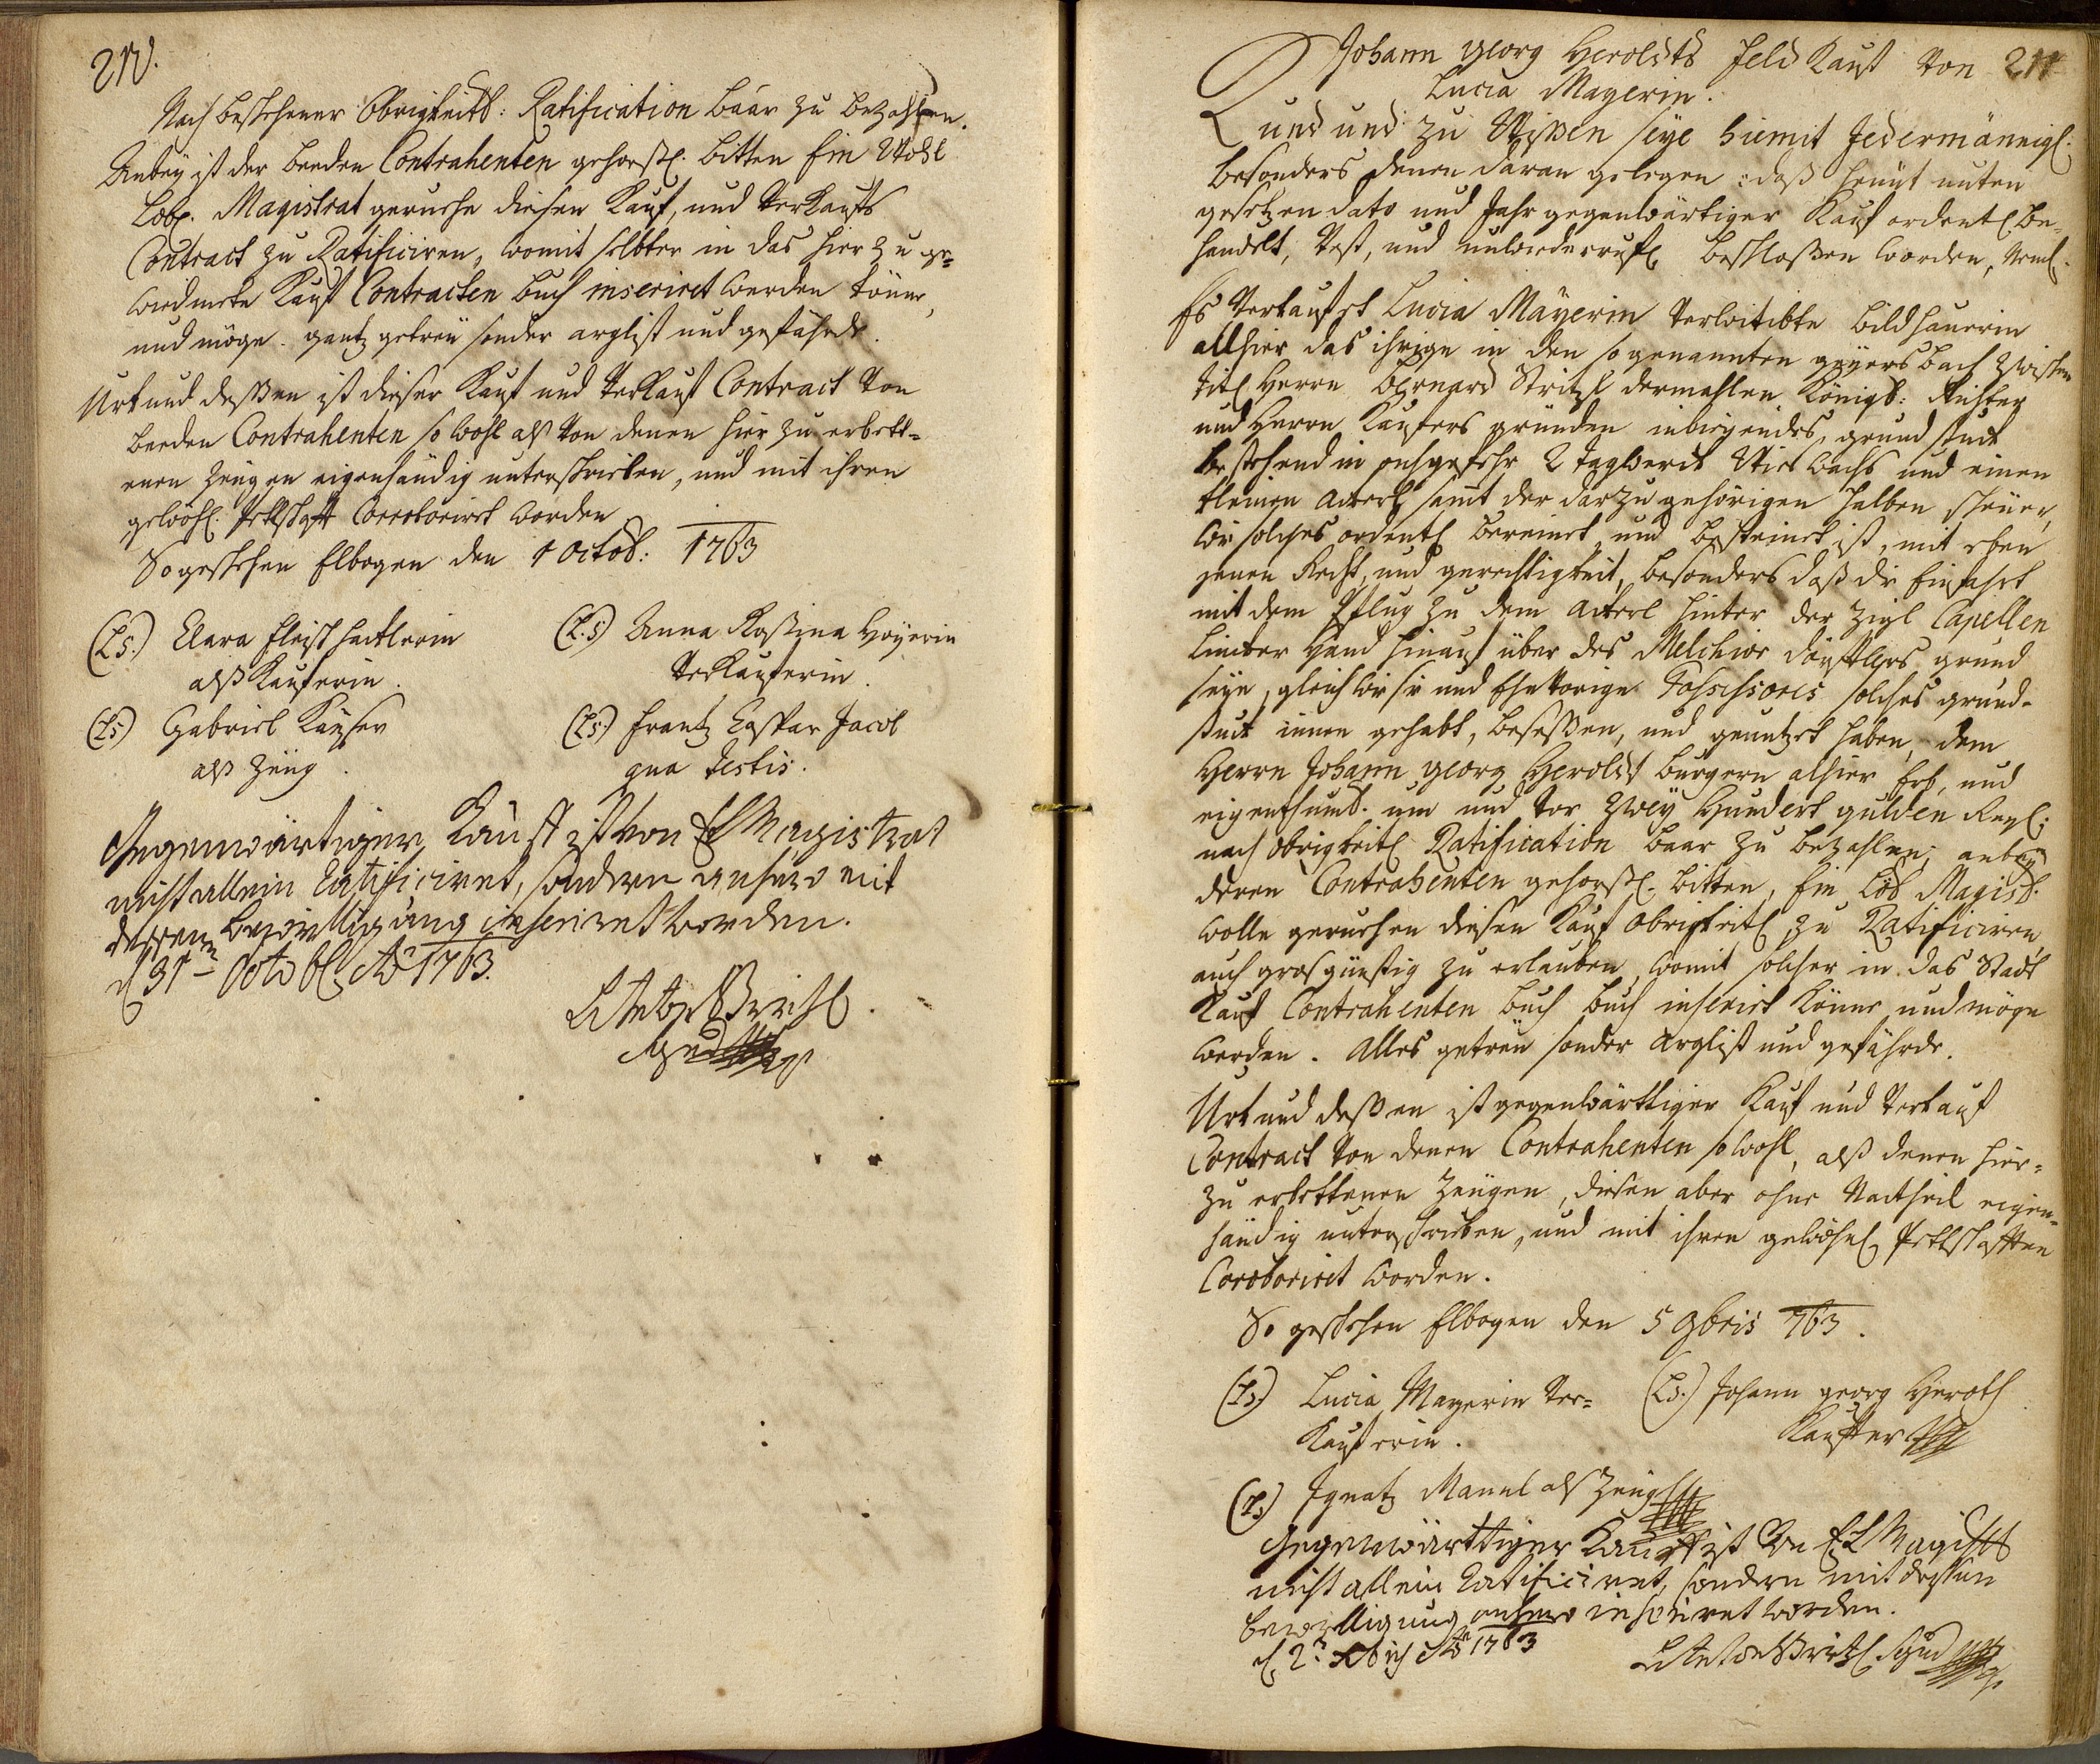 210.
Nach beschehener Obrigkeitl: Ratification baar zu bezahlen.
Anbey ist der beeden Contrahenten gehors. bitten Ein Wohl
Löbl. Magistrat geruhe diesen Kauf, und Verkaufs
Contract zu Ratificiren, womit selbter in das hierzu ge-
wiedmete Kauf Contracten buch inseriret werden könne,
und möge. gantz getreü sonder arglist und gefährde.
Urkund dessen ist dieser Kauf und Verkauf Contract von
beeden Contrahenten so wohl als von denen hierzu erbett-
enen Zeugen eigenhändig unterschrieben, und mit ihren
gewöhl. Pettschaft Corroboriret worden
So geschehen Elbogen den 1 Octob: 1763
(L.S.) Clara Fleischhacklerin
als Kauferin.
(L.S) Anna Rosina Hoyerin
Verkauferin.
(L.S) Gabriel Kayser
als Zeug.
(L.S.) Frantz Caspar Jacob
qua testis.
Gegenwärtiger Kauff ist von EL Magistrat
nicht allein ratificiret, sondern anhero mit
dessen bewilligung inseriret worden.
d 31 Octobr Ao 1763.
Johann Georg Heroldts Feld Kauf von 211
Lucia Mayerin.
Kund und zu Wissen seye hiemit Jedermännigl.
besonders denen daran gelegen: daß heunt unten
gesetzen dato und Jahr gegenwärtiger Kauf ordentl. be-
handelt, vest, und unwiederrufl. beschlossen worden, Neml.
Es Verkaufet Lucia Mayerin verwittibte bildhauerin
allhier das ihrige in den so genannten geyersbach zwischen
titl Herrn Bernard Stritzl dermahlen Königl: Richter
und Herrn Kaufers gründen inliegendes, grundstuck
bestehend in ohngefehr 2 tagwerck Wieswachs und einen
kleinen Ackerl samt der darzu gehörigen halben scheuer,
wie solches ordentl bereinet, und besteinet ist, mit eben
jenen Recht, und gerechtigkeit, besonders daß die Einfahrt
mit dem Pflug zu dem Ackerl hinter der Zigl Capellen
lincker Hand hinauf über des Melchior grund
seye, gleich wie sie und Ehevorige Possessores solches grund-
stuck innen gehabt, besessen, und genutzet haben, dem
Herrn Johann Georg Heroldt burgern alhier Erb, und
eigenthuml. um und vor Zwey Hundert gulden
nach Obrigkeitl Ratification baar zu bezahlen, anbey
deren Contrahenten gehorsl. bitten, Ein Löb Magist.
wolle geruhen diesen Kauf Obrigkeitl zu Ratificiren,
auch grosgünstig zu erlauben, womit solcher in das Stadt
Kauf Contrahenten buch buch inserirt könne und möge
werden. Alles getreü sonder Arglist und gefährde.
Urkund dessen ist gegenwärttiger Kauf und Verkauf
Contract von denen Contrahenten so wohl, als denen hier-
zu erbettenen Zeugen, diesen aber ohne Nachtheil eigen-
händig unterschrieben, und mit ihren gewöhnl Pettschafften
Corroboriret worden.
So geschehen Elbogen den 5 9bris 763.
(L.S) Lucia Mayerin Ver-
Kauferin.
(L.S.) Johann georg Heroth
Kauffer
(L.S) Ignatz Mannl als Zeug
Gegenwärttiger Kauff ist Von EL Magistt
nicht allein ratificiret, sondern mit dessen
bewilligung anhero inseriret worden.
Ao 1763